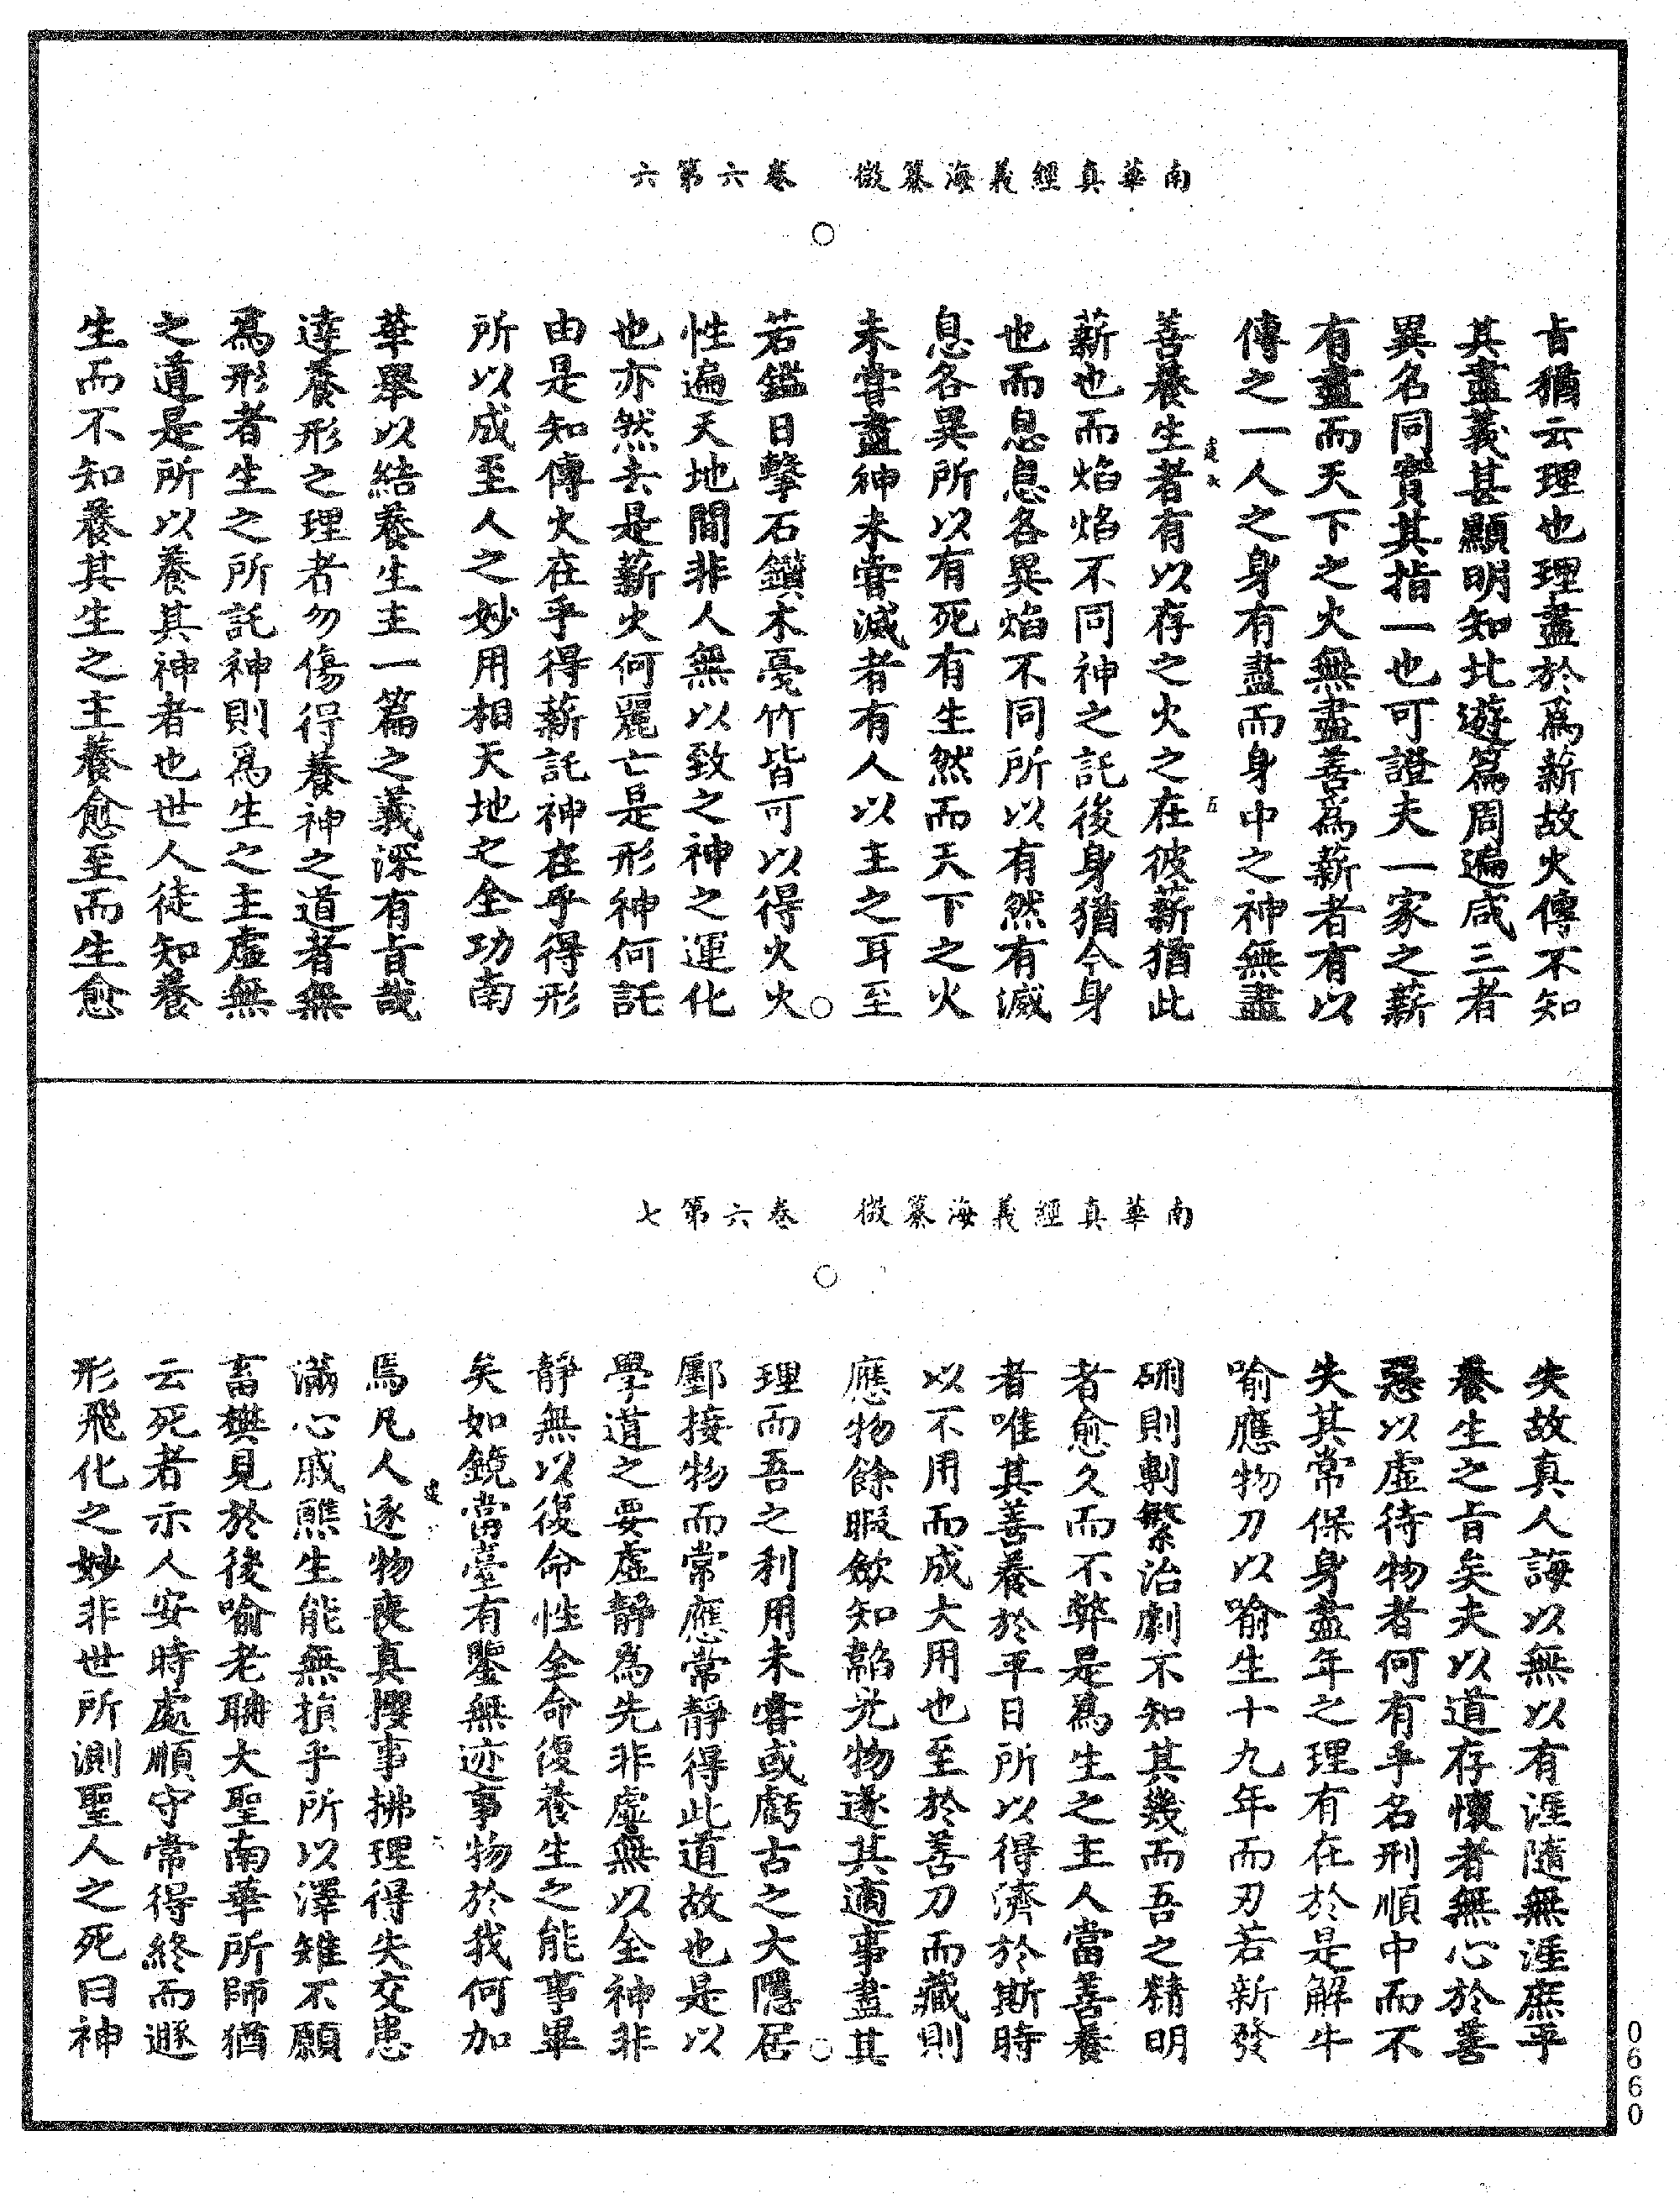 南華真經義海纂微　卷六第六
㫖猶云理也理盡於爲薪故火傳不知
其盡義甚顯明知北遊篇周遍咸三者
異名同實其指一也可證夫一家之薪
有盡而天下之火無盡善爲薪者有以
傳之一人之身有盡而身中之神無盡
善養生者有以存之火之在彼薪猶此
薪也而焰焰不同神之託後身猶今身
也而息息各異焰不同所以有然有滅
息各異所以有死有生然而天下之火
未嘗盡神未嘗滅者有人以主之耳至
若鑑日擊石鑽木戞竹皆可以得火火
性遍天地間非人無以致之神之運化
也亦然去是薪火何麗亡是形神何託
由是知傳火在乎得薪託神在乎得形
所以成至人之妙用相天地之全功南
華舉以結養生主一篇之義深有㫖哉
達養形之理者勿傷得養神之道者無
爲形者生之所託神則爲生之主虛無
之道是所以養其神者也世人徒知養
生而不知養其生之主養愈至而生愈
南華真經義海纂微　卷六第七
失故真人誨以無以有涯隨無涯庶乎
養生之㫖矣夫以道存懷者無心於善
惡以虛待物者何有乎名刑順中而不
失其常保身盡年之理有在於是解牛
喻應物刀以喻生十九年而刃若新發
硎則剸繁治劇不知其幾而吾之精明
者愈久而不弊是爲生之主人當善養
者唯其善養於平日所以得濟於斯時
以不用而成大用也至於善刀而藏則
應物餘暇斂知韜光物遂其適事盡其
理而吾之利用未嘗或虧古之大隱居
鄽接物而常應常靜得此道故也是以
學道之要虛靜爲先非虛無以全神非
靜無以復命性全命復養生之能事畢
矣如鏡當臺有鑒無迹事物於我何加
焉凡人逐物喪真攖事拂理得失交患
滿心戚醮生能無損乎所以澤雉不願
畜樊見於後喻老聃大聖南華所師猶
云死者示人安時處順守常得終而遯
形飛化之妙非世所測聖人之死曰神
0660